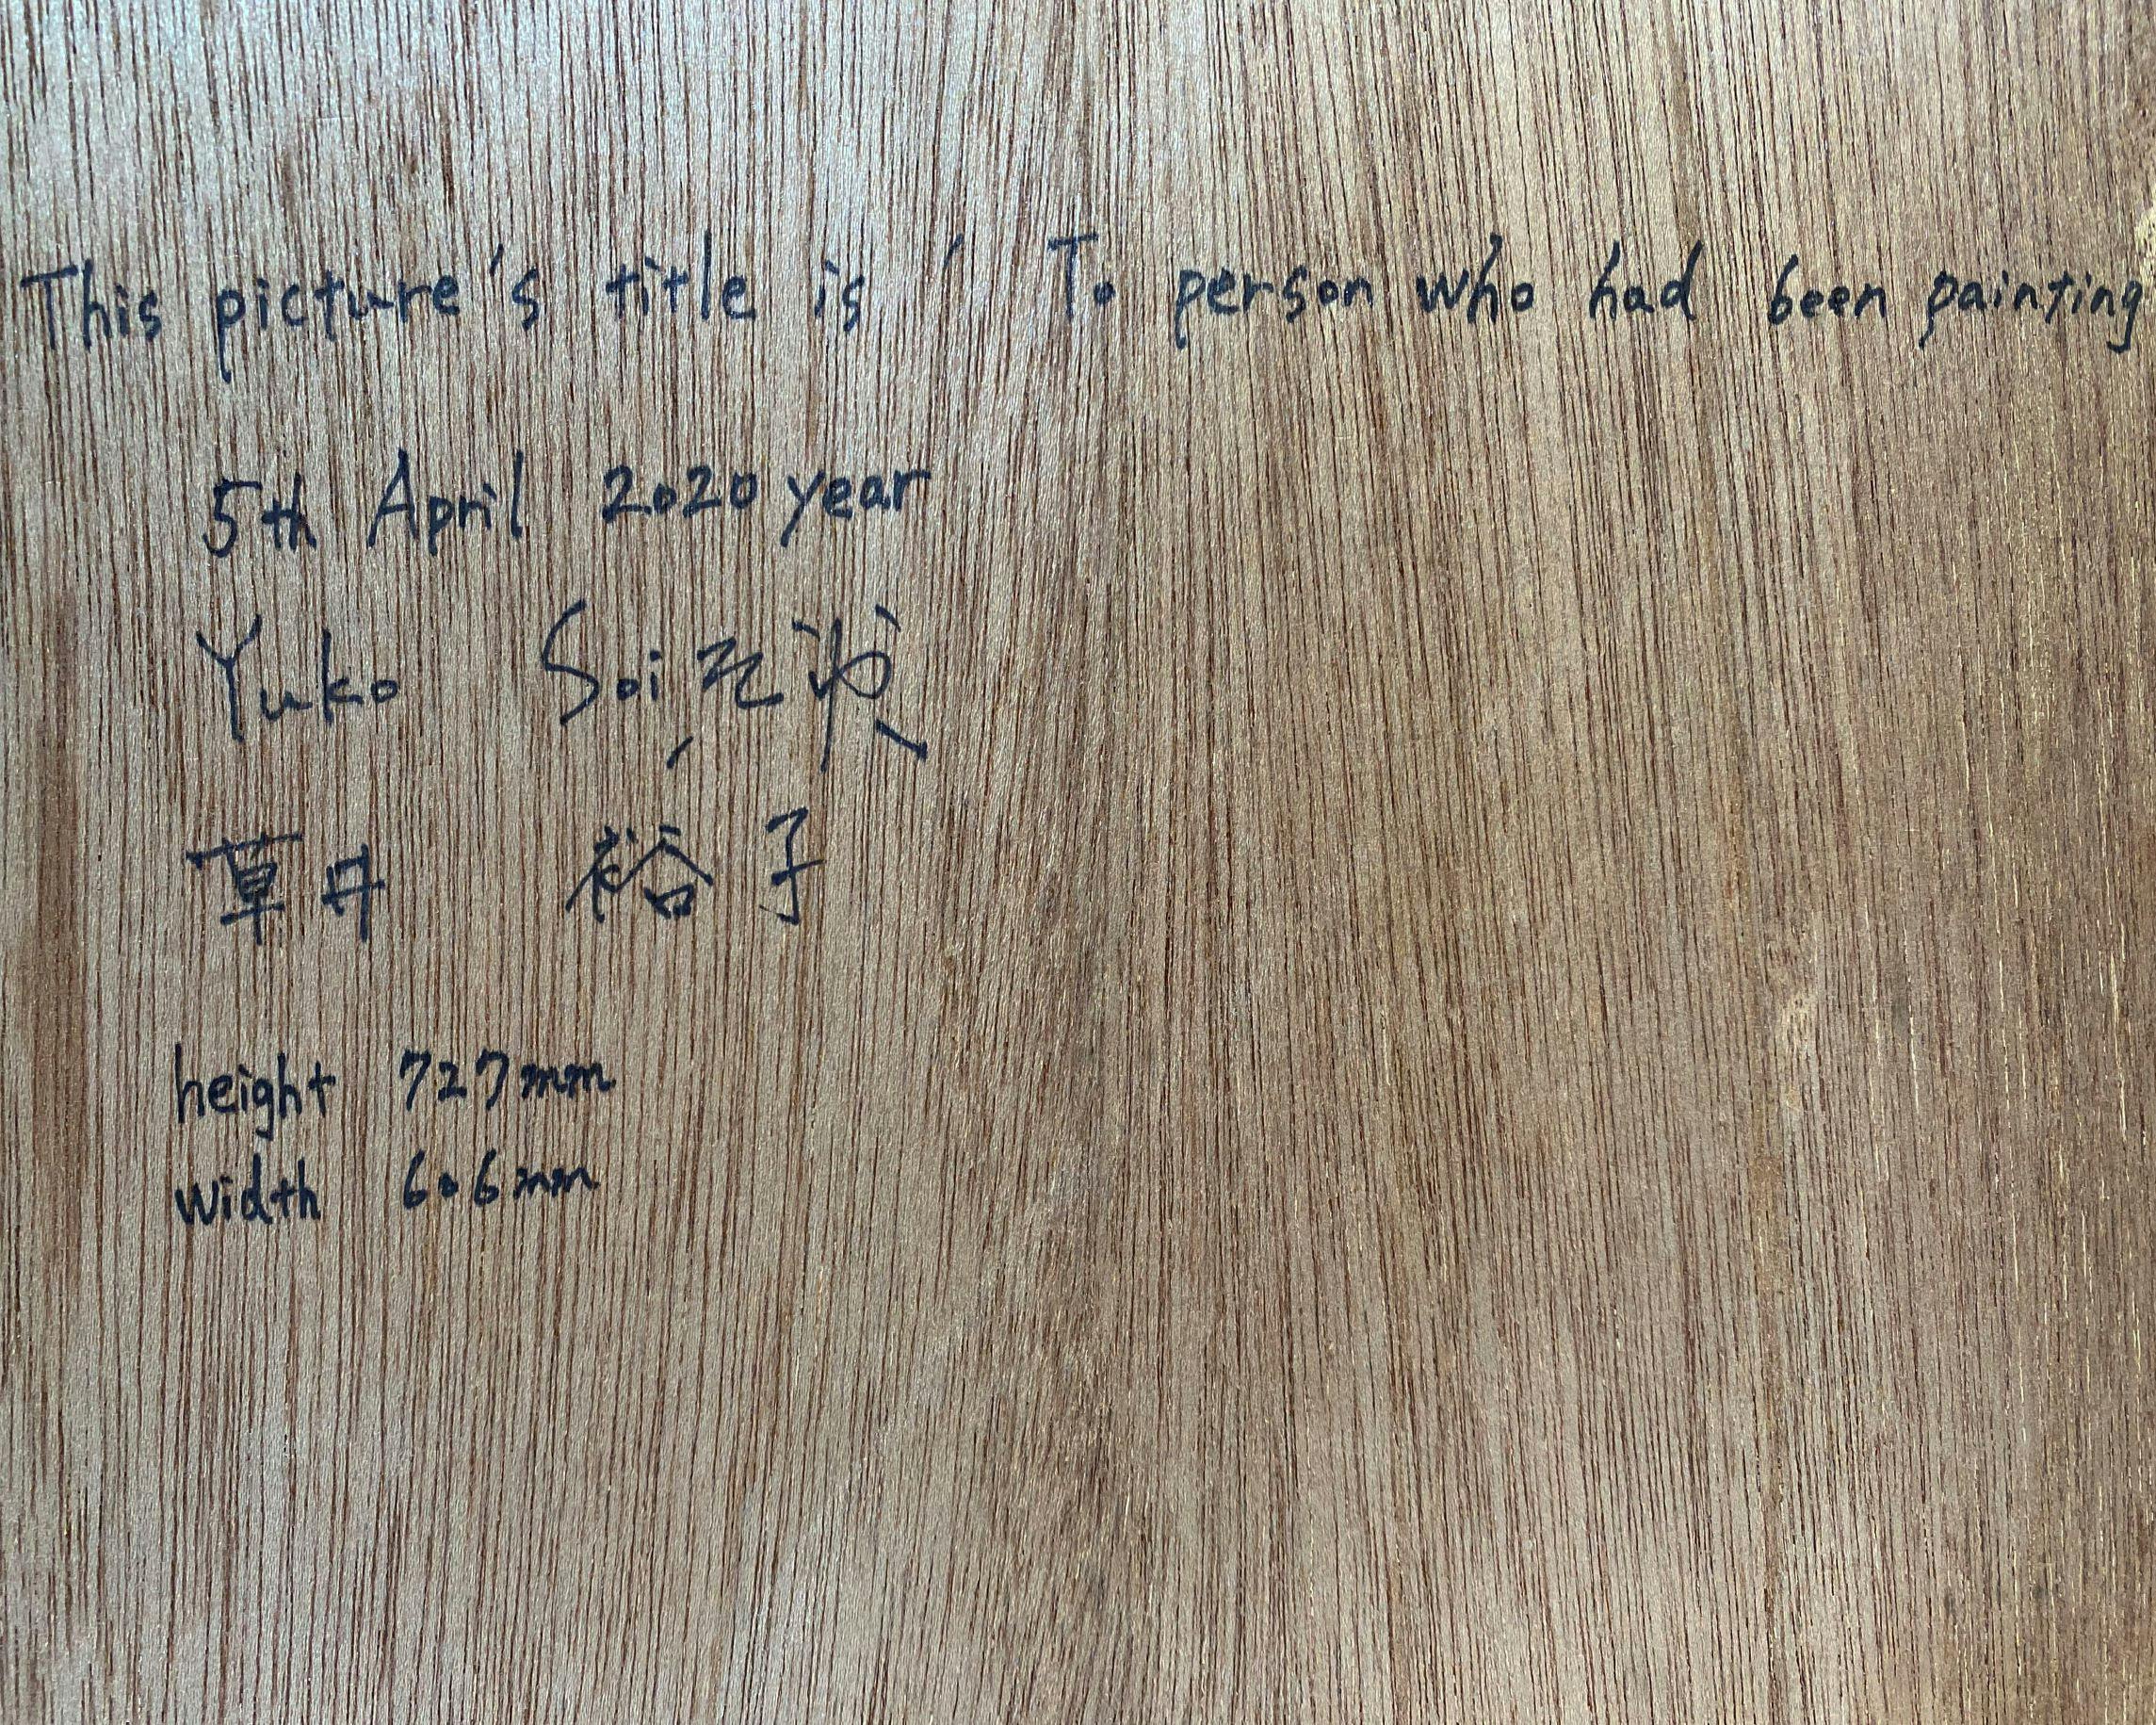 This picture's title is ' To person who had been painting
5th April 2020 year
Yuko Soi
草井 裕子
height 727mm
width 606mm